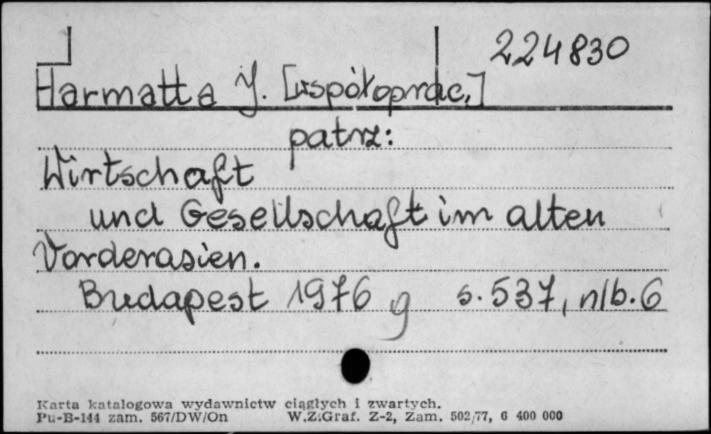 224830
Harmatta J. [współoprac.]
patrz:
Wirtschaft
und Gesellschaft im alten
Vorderasien.
Budapest 1976 g s. 537, nlb. 6
Karta katalogowa wydawnictw ciągłych i zwartych.
Pu-B-144 zam. 567/DW/On W.Z.Graf. Z-2, Zam. 502/77, 6 400 000